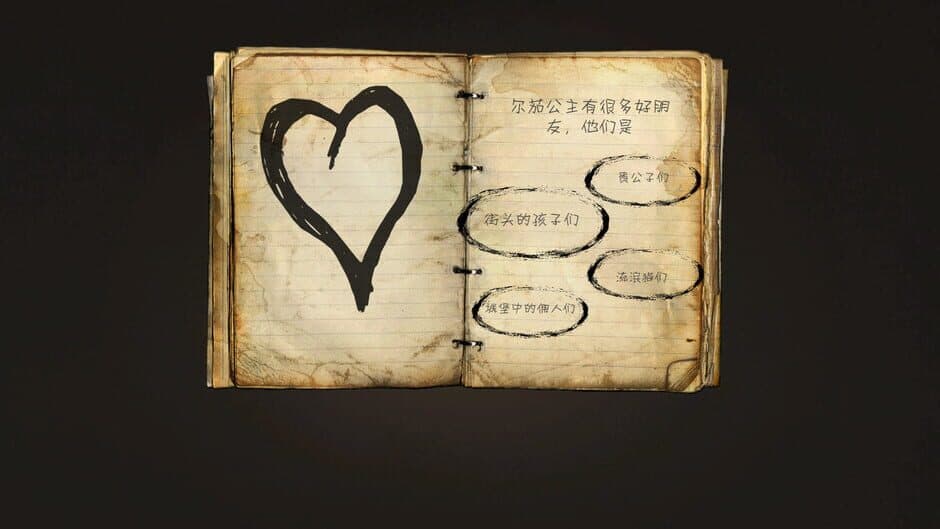 尔茄公主有很多好朋
友，他们是
贵公子们
街头的孩子们
流浪猫们
城堡中的佣人们